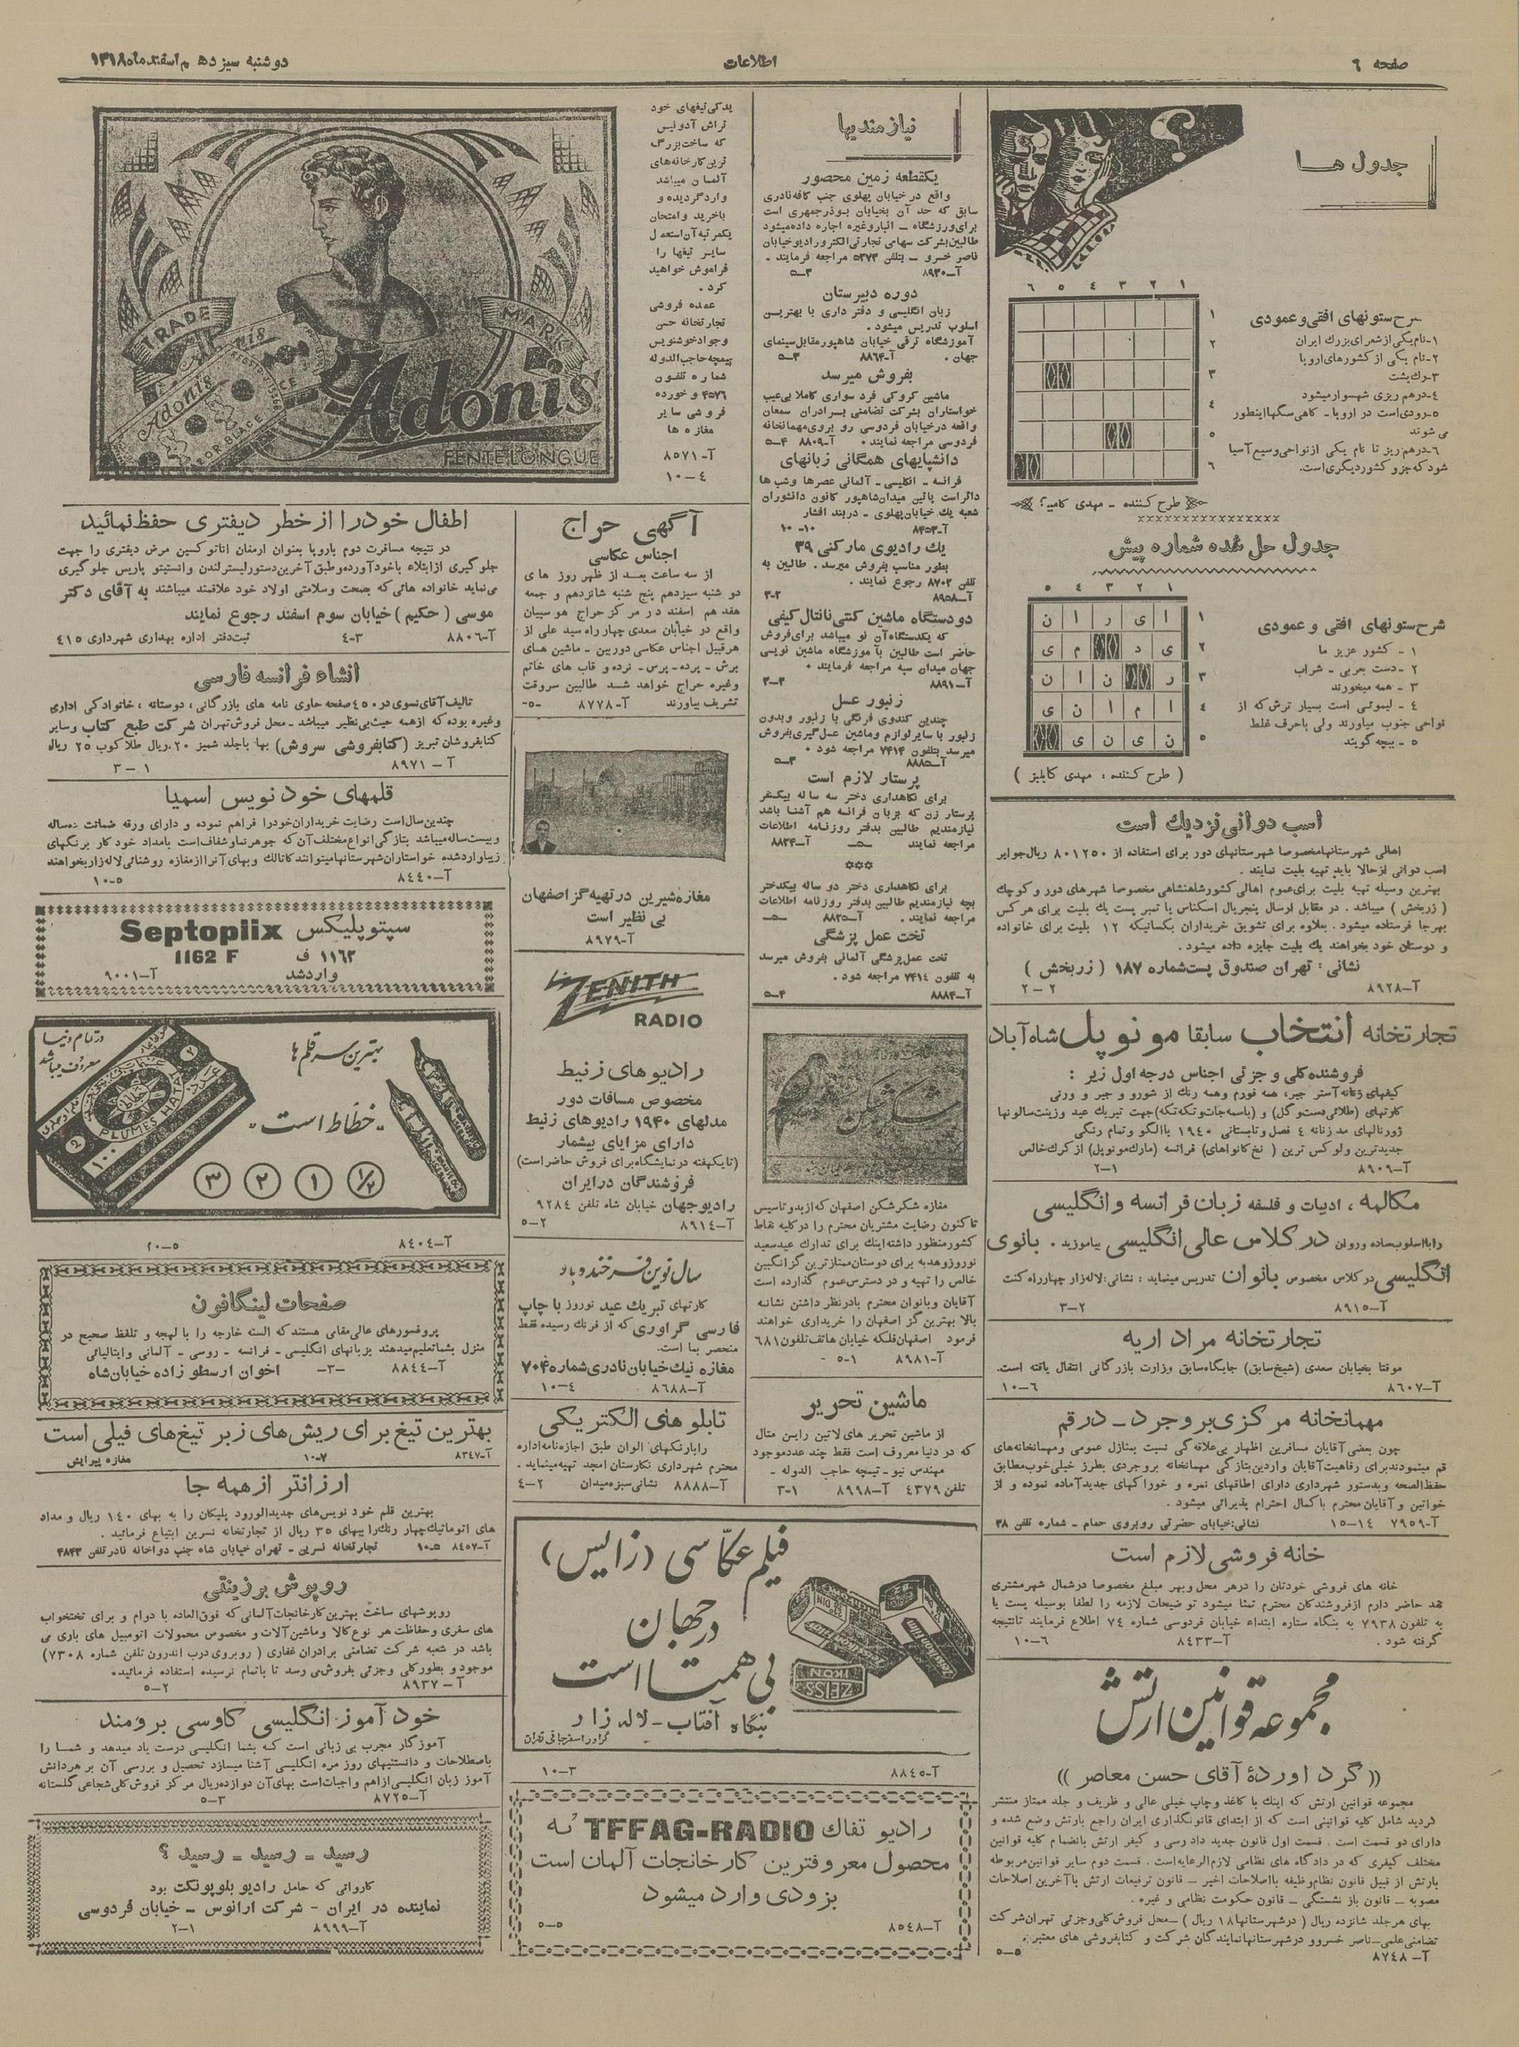 صفحه ۶
اطلاعات
دوشنبه سیزدهم اسفندماه ۱۳۱۸
جدول ها
۱ ۲ ۳ ۴ ۵ ۶
شرح ستونهای افقی و عمودی
۱-نام یکی از شعرای بزرك ایران
۲-نام یکی از کشورهای اروپا
۴-درهم ریزی شهسوار میشود
۵-رودی است در اروپا- گاهی سگها اینطور
می شوند
۶-درهم ریز تا نام یکی از نواحی وسیع آسیا
شود که جزو کشور دیگری است.
جدول حل شده شماره پیش
شرح ستونهای افقی و عمودی
۱ - کشور عزیز ما
۲ - دست بعربی - شراب
۳ - همه میخورند
۴ - لیموئی است بسیار ترش که از
نواحی جنوب میآورند ولی باحرف غلط
۵ - ببچه گویند
۱ ۲ ۳ ۴ ۵
ا ی ر ا ن
ی د م ی
ر ن ا ن
ا م ا ن ی
ن ی ن ی
اسب دوانی نزدیك است
اهالی شهرستانها مخصوصا شهرستانهای دور برای استفاده از ۸۰۱۲۵۰ ریال جوایز
اسب دوانی از حالا باید تهیه بلیت نمایند .
بهترین وسیله تهیه بلیت برای عموم اهالی کشور شاهنشاهی مخصوصا شهرهای دور و کوچك
( زربخش ) میباشد . در مقابل ارسال پنجریال اسکناس یا تمبر پست یك بلیت برای هر کس
بهرجا فرستاده میشود . بعلاوه برای تشویق خریداران بکسانیکه ۱۲ بلیت برای خانواده
و دوستان خود بخواهند یك بلیت جایزه داده میشود .
نشانی : تهران صندوق پست شماره ۱۸۷ ( زربخش )
آ-۸۹۲۸ ۲-۲
تجارتخانه انتخاب سابقا مونوپل شاه آباد
فروشنده کلی و جزئی اجناس درجه اول زیر :
کیفهای زنانه آستر جیر، همه فورم و همه رنك از شورو و جیر و ورنی
ژورنالهای مد زنانه ۴ فصل و تابستانی ۱۹۴۰ با الگو و تمام رنگی
آ-۸۹۰۹ ۲-۱
مکالمه ، ادبیات و فلسفه زبان فرانسه و انگلیسی
را با اسلوب ساده و روان در کلاس عالی انگلیسی بیاموزید . بانوی
انگلیسی در کلاس مخصوص بانوان تدریس مینماید : نشانی: لاله زار چهارراه کنت
آ-۸۹۱۵ ۳-۲
تجارتخانه مراد اریه
موقتا بخیابان سعدی (شیخ سابق) جایگاه سابق وزارت بازرگانی انتقال یافته است.
آ-۸۶۰۷ ۱۰-۶
مهمانخانه مرکزی بروجرد - در قم
چون بعضی آقایان مسافرین اظهار بی علاقه گی نسبت بمنازل عمومی و مهمانخانه های
قم مینمودند برای رفاهیت آقایان واردین بتازگی مهمانخانه بروجردی بطرز خیلی خوب مطابق
حفظ الصحه و بدستور شهرداری دارای اطاقهای نمره و خوراکهای جدید آماده نموده و از
خواتین و آقایان محترم باکمال احترام پذیرائی میشود .
آ-۷۹۵۹ ۱۵-۱۴ نشانی: خیابان حضرتی روبروی حمام - شماره تلفن ۳۸
خانه فروشی لازم است
خانه های فروشی خودتان را در هر محل و بهر مبلغ مخصوصا در شمال شهر مشتری
نقد حاضر دارم از فروشندگان محترم تمنا میشود توضیحات لازمه را لطفا بوسیله پست یا
به تلفون ۷۹۳۸ به بنگاه ستاره ابتداء خیابان فردوسی شماره ۷۴ اطلاع فرمایند تا نتیجه
گرفته شود . آ-۸۴۳۳ ۱۰-۶
مجموعه قوانین ارتش
(( گرد آوردهٔ آقای حسن معاصر ))
مجموعه قوانین ارتش که اینك با کاغذ و چاپ خیلی عالی و ظریف و جلد ممتاز منتشر
گردید شامل کلیه قوانینی است که از ابتدای قانونگذاری ایران راجع بارتش وضع شده و
دارای دو قسمت است . قسمت اول قانون جدید دادرسی و کیفر ارتش بانضمام کلیه قوانین
مختلف کیفری که در دادگاه های نظامی لازم الرعایه است . قسمت دوم سایر قوانین مربوطه
بارتش از قبیل قانون نظام وظیفه با اصلاحات اخیر - قانون ترفیعات ارتش با آخرین اصلاحات
مصوبه - قانون بازنشستگی - قانون حکومت نظامی و غیره .
بهای هر جلد شانزده ریال ( در شهرستانها ۱۸ ریال ) - محل فروش کلی و جزئی تهران شرکت
تضامنی علمی - ناصر خسرو و در شهرستانها نمایندگان شرکت و کتابفروشی های معتبر .
آ-۸۷۴۸ ۵-۵
نیازمندیها
یکقطعه زمین محصور
واقع در خیابان پهلوی جنب کافه نادری
سابق که حد آن بخیابان بوذرجمهری است
برای ورزشگاه - انبار و غیره اجاره داده میشود
طالبین بشرکت سهامی تجارتی الکترورادیو خیابان
ناصر خسرو - بتلفن ۵۳۷۳ مراجعه فرمایند .
آ-۸۹۳۰ ۵-۳
دوره دبیرستان
زبان انگلیسی و دفتر داری با بهترین
اسلوب تدریس میشود .
آموزشگاه ترقی خیابان شاهپور مقابل سینمای
جهان . آ-۸۸۶۴ ۵-۳
بفروش میرسد
ماشین کروکی فرد سواری کاملا بی عیب
خواستاران بشرکت تضامنی برادران سمعان
واقعه در خیابان فردوسی رو بروی مهمانخانه
فردوسی مراجعه نمایند . آ-۸۸۰۹ ۵-۴
دانشپایهای همگانی زبانهای
فرانسه - انگلیسی - آلمانی عصرها و شب ها
دائر است پائین میدان شاهپور کانون دانشوران
شعبه یك خیابان پهلوی - دربند افشار
آ-۸۴۵۳ ۱۰-۱۰
یك رادیوی مارکنی ۳۹
بطور مناسب بفروش میرسد . طالبین به
تلفن ۸۷۰۲ رجوع نمایند .
آ-۸۹۵۸ ۳-۲
دو دستگاه ماشین کنتی نانتال کیفی
که یکدستگاه آن نو میباشد برای فروش
حاضر است طالبین با موزشگاه ماشین نویسی
جهان میدان سپه مراجعه فرمایند .
آ-۸۸۹۱ ۳-۳
زنبور عسل
چندین کندوی فرنگی با زنبور و بدون
زنبور با سایر لوازم و ماشین عسل گیری بفروش
میرسد بتلفون ۷۴۱۴ مراجعه شود .
آ-۸۸۸۵ ۵-۳
پرستار لازم است
برای نگاهداری دختر سه ساله بیکنفر
پرستار زن که بزبان فرانسه هم آشنا باشد
نیازمندیم طالبین بدفتر روزنامه اطلاعات
مراجعه نمایند آ-۸۸۲۴
برای نگاهداری دختر دو ساله بیکدختر
بچه نیازمندیم طالبین بدفتر روزنامه اطلاعات
مراجعه نمایند . آ-۸۸۲۵
تخت عمل پزشگی
تخت عمل پزشگی آلمانی بفروش میرسد
به تلفون ۷۴۱۴ مراجعه شود .
آ-۸۸۸۴ ۵-۴
شکرشکن
مغازه شکرشکن اصفهان که از بدو تاسیس
تا کنون رضایت مشتریان محترم را در کلیه نقاط
کشور منظور داشته اینك برای تدارك عید سعید
نوروز و هدیه برای دوستان ممتاز ترین گز انگبین
خالص را تهیه و در دسترس عموم گذارده است
آقایان و بانوان محترم با در نظر داشتن نشانه
بالا بهترین گز اصفهان را خریداری خواهند
فرمود اصفهان فلکه خیابان هاتف تلفون ۶۸۱
آ-۸۹۸۱ ۵-۱
ماشین تحریر
از ماشین تحریر های لاتین راین متال
که در دنیا معروف است فقط چند عدد موجود
مهندس نیو - تیمچه حاجب الدوله -
تلفن ۴۳۷۹ آ-۸۹۹۸ ۳-۱
یدکی تیغهای خود
تراش آدونیس
که ساخت بزرگ
ترین کارخانه های
آلمان میباشد
وارد گردیده و
با خرید و امتحان
یکمرتبه آن استعمال
سایر تیغها را
فراموش خواهید
کرد .
عمده فروشی
تجارتخانه حسن
و جواد خوشنویس
تیمچه حاجب الدوله
شماره تلفون
۴۵۷۶ و خورده
فروشی سایر
مغازه ها
آ-۸۵۷۱
۱۰-۴
TRADE MARK
Adonis
FENTE LONGUE
آگهی حراج
اجناس عکاسی
از سه ساعت بعد از ظهر روز های
دو شنبه سیزدهم پنج شنبه شانزدهم و جمعه
هفدهم اسفند در مرکز حراج هوسپیان
واقع در خیابان سعدی چهار راه سید علی از
هر قبیل اجناس عکاسی دوربین - ماشین های
برش - پرده - پرس - نرده و قاب های خاتم
وغیره حراج خواهد شد طالبین سروقت
تشریف بیاورند آ-۸۷۷۸
مغازه شیرین در تهیه گز اصفهان
بی نظیر است
آ-۸۹۷۹
ZENITH
RADIO
رادیو های زنیط
مخصوص مسافات دور
مدلهای ۱۹۴۰ رادیوهای زنیط
دارای مزایای بیشمار
(تا یکهفته در نمایشگاه برای فروش حاضر است)
فروشندگان در ایران
رادیو جهان خیابان شاه تلفن ۹۲۸۴
آ-۸۹۱۴ ۵-۲
سال نوین فرخنده باد
کارتهای تبریك عید نوروز با چاپ
فارسی گراوری که از فرنك رسیده فقط
منحصر بما است.
مغازه نیك خیابان نادری شماره ۷۰۴
آ-۸۶۸۸ ۱۰-۴
تابلو های الکتریکی
را بارنگهای الوان طبق اجازه نامه اداره
محترم شهرداری نگارستان امجد تهیه مینماید .
آ-۸۸۸۸ نشانی سبزه میدان ۴-۲
فیلم عکاسی (زایس)
در جهان
بی همتا است
بنگاه آفتاب - لاله زار
ZEISS IKON
آ-۸۸۴۵ ۱۰-۳
رادیو تفاك TFFAG-RADIO که
محصول معروفترین کارخانجات آلمان است
بزودی وارد میشود
آ-۸۵۴۸ ۵-۵
اطفال خود را از خطر دیفتری حفظ نمائید
در نتیجه مسافرت دوم باروپا بعنوان ارمغان اناتوکسین مرض دیفتری را جهت
جلو گیری از ابتلاء با خود آورده و طبق آخرین دستور لیستر لندن و انستیتو پاریس جلو گیری
می نماید خانواده هائی که بصحت و سلامتی اولاد خود علاقمند میباشند به آقای دکتر
موسی ( حکیم ) خیابان سوم اسفند رجوع نمایند
آ-۸۸۰۶ ۴-۳ ثبت دفتر اداره بهداری شهرداری ۴۱۵
انشاء فرانسه فارسی
تالیف آقای نسوی در ۴۵۰ صفحه حاوی نامه های بازرگانی ، دوستانه ، خانوادگی اداری
وغیره بوده که از همه حیث بی نظیر میباشد - محل فروش تهران شرکت طبع کتاب و سایر
کتابفروشان تبریز (کتابفروشی سروش) بها با جلد شمیز ۲۰ ریال طلا کوب ۲۵ ریال
آ-۸۹۷۱ ۳-۱
قلمهای خود نویس اسمیا
چندین سال است رضایت خریداران خود را فراهم نموده و دارای ورقه ضمانت ده ساله
و بیست ساله میباشد بتازگی انواع مختلف آن که جوهر نما و شفاف است با مداد خود کار برنگهای
زیبا وارد شده خواستاران شهرستانها میتوانند کاتالك و بهای آنرا از مغازه روشنائی لاله زار بخواهند
آ-۸۴۴۰ ۱۰-۵
سپتوپلیکس Septopliix
۱۱۶۲ ف 1162 F
وارد شد آ-۹۰۰۱
در تمام دنیا
معروف میباشد
بهترین سرقلم ها
«خطاط است»
PLUMES HATAT
۱/۲ ۱ ۲ ۳
آ-۸۴۰۴ ۲۰-۵
صفحات لینگافون
پروفسورهای عالی مقامی هستند که السنه خارجه را با لهجه و تلفظ صحیح در
منزل بشما تعلیم میدهند بزبانهای انگلیسی - فرانسه - روسی - آلمانی و ایتالیائی
آ-۸۸۴۴ -۳- اخوان ارسطو زاده خیابان شاه
بهترین تیغ برای ریش های زبر تیغ های فیلی است
آ-۸۳۴۷ ۱۰-۷ مغازه پیرایش
ارزانتر از همه جا
بهترین قلم خود نویس های جدیدالورود پلیکان را به بهای ۱۴۰ ریال و مداد
های اتوماتیك چهار رنك را ببهای ۳۵ ریال از تجارتخانه نسرین ابتیاع فرمائید .
آ-۸۴۵۷ ۱۰-۵ تجارتخانه نسرین - تهران خیابان شاه جنب دواخانه نادر تلفن ۴۸۴۳
روپوش برزینتی
روپوشهای ساخت بهترین کارخانجات آلمانی که فوق العاده با دوام و برای تختخواب
های سفری و حفاظت هر نوع کالا و ماشین آلات و مخصوص محمولات اتومبیل های باری می
باشد در شعبه شرکت تضامنی برادران غفاری ( روبروی درب اندرون تلفن شماره ۷۳۰۸)
موجود و بطور کلی و جزئی بفروش می رسد تا باتمام نرسیده استفاده فرمائید.
آ-۸۹۳۷ ۵-۲
خود آموز انگلیسی کاوسی برومند
آموزگار مجرب بی زبانی است که بشما انگلیسی درست یاد میدهد و شما را
باصطلاحات و دانستنیهای روز مره انگلیسی آشنا میسازد تحصیل و بررسی آن بر هر دانش
آموز زبان انگلیسی از اهم واجبات است بهای آن دوازده ریال مرکز فروش کلی شجاعی گلستانه
آ-۸۷۲۵ ۵-۳
رسید - رسید - رسید ؟
کاروانی که حامل رادیو بلوپونکت بود
نماینده در ایران - شرکت ارانوس - خیابان فردوسی
آ-۸۹۹۹ ۲-۱